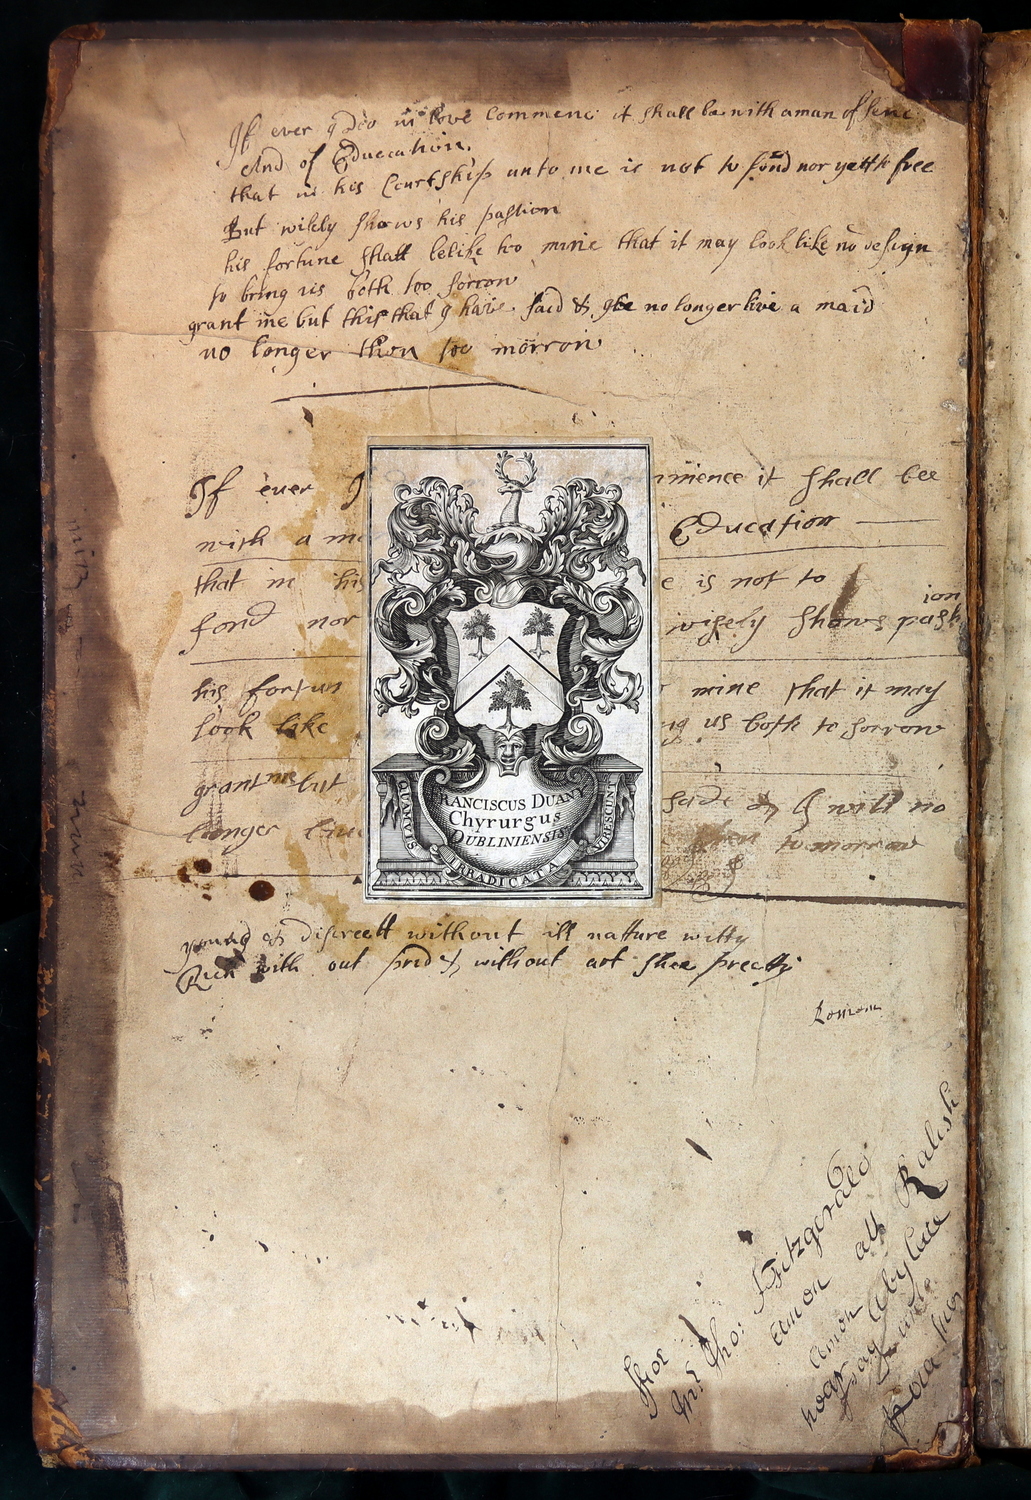 If ever I doo in love Commenc it shall be with a man of senc
And of Educcation.
that in his Courtship unto me is not to fond nor yett free
But wisely shows his passion
his fortune shall belike too mine that it may look like no design
to bring us both too sorrow
grant me but this that I have said & Ile no longer live a maid
no longer then too morrow
If ever I mmence it shall bee
with a ma Education
that in his e is not to
fond nor wisely shows passion
his fortun mine that it may
look like ng us both to sorrow
grant me but said & I will no
longer live then tomorrow
FRANCISCUS DUANY
Chyrurgus
DUBLINIENSIS
QUAMVIS IRRADICATA VIRESCUNT
young & discreett without ill natture witty
Rich with out prid & without art shee pretty
ffor
Mr Tho: Fitzgerald
att Ralish